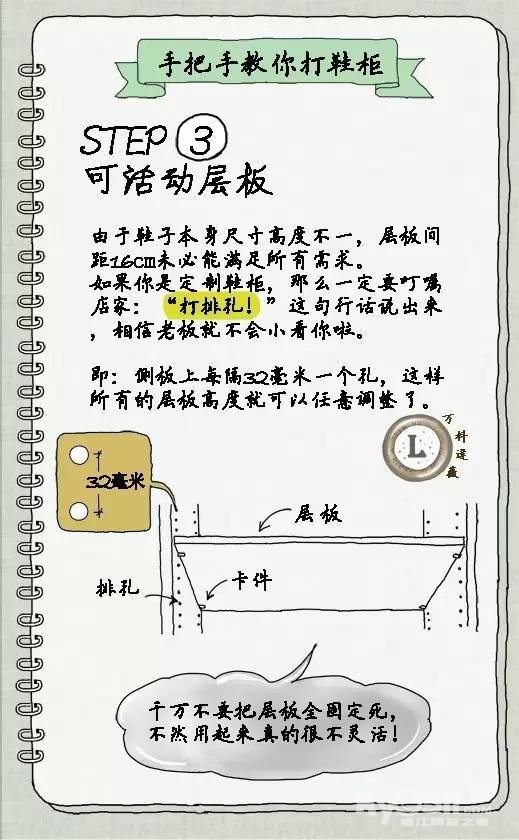 手把手教你打鞋柜
STEP ③
可活动层板
由于鞋子本身尺寸高度不一，层板间
距16cm未必能满足所有需求。
如果你是定制鞋柜，那么一定要叮嘱
店家：“打排孔！”这句行话说出来
，相信老板就不会小看你啦。
即：侧板上每隔32毫米一个孔，这样
所有的层板高度就可以任意调整了。
L
万科连薇
32毫米
层板
排孔
卡件
千万不要把层板全固定死，
不然用起来真的很不灵活！